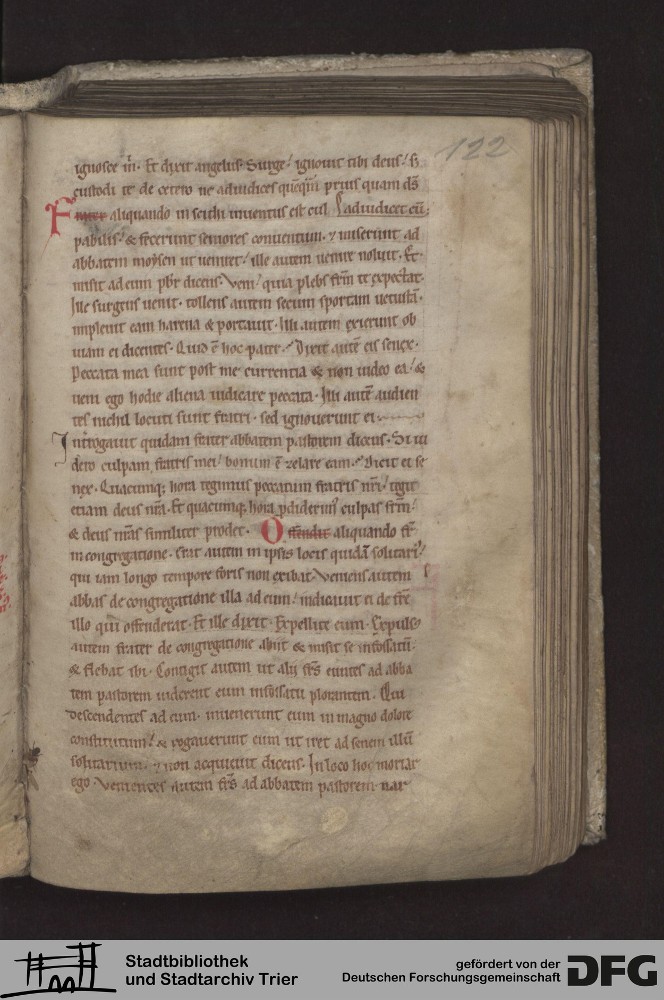 122
ignosce m̄. Et dixit angelus. Surge / ignouit tibi deus / s;
custodi te de cetero ne adiudices quēq̄m prius quam d̄s
Frater aliquando in scithi inuentus est cul⸠adiudicet eū;
pabilis / & fecerunt seniores conuentum. ⁊ miserunt ad
abbatem moẏsen ut ueniret / ille autem uenire noluit. Et
misit ad eum pb̄r dicens. Veni / quia plebs fr̄m te expectat.
Ille surgens uenit. tollens autem secum sportam uetustā.
impleuit eam harena & portauit. Illi autem exierunt ob
uiam ei dicentes. Quid ē hoc pater. Dixit autē eis senex.
Peccata mea sunt post me currentia & non uideo ea / &
ueni ego hodie aliena iudicare peccata. Illi autē audien
tes nichil locuti sunt fratri. sed ignouerunt ei
Interogauit quidam frater abbatem pastorem dicens. Si ui
dero culpam fratris mei / bonum ē celare eam. Dicit ei se
nex. Quacumq; hora tegimus peccatum fratris nr̄i / tegit
etiam deus nr̄a. Et quacumq; hora p̄diderim᾽ culpas fr̄m /
& deus nr̄as similiter prodet. Offendit aliquando fr̄
in congregatione. Erat autem in ipsis locis quidā solitari᾽
qui iam longo tempore foris non exibat. Veniens autem
abbas de congregatione illa ad eum / indicauit ei de fr̄e
illo qui offenderat. Et ille dixit. Expellite eum. Expuls᾽
autem frater de congregatione abiit & misit se in fossatū.
& flebat ibi. Contigit autem ut alij fr̄s euntes ad abba
tem pastorem uiderent eum in fossatu plorantem. Qui
descendentes ad eum. inuenerunt eum in magno dolore
constitutum / & rogauerunt eum ut iret ad senem illū
solitarium. ⁊ non acquieuit dicens. In loco hoc moriar
ego. Venientes autem fr̄s ad abbatem pastorem nar
Stadtbibliothek
und Stadtarchiv Trier
gefördert von der
Deutschen Forschungsgemeinschaft
DFG